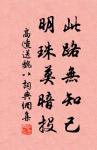 此路無知己
明珠莫暗投
高適送魏八詞典網集